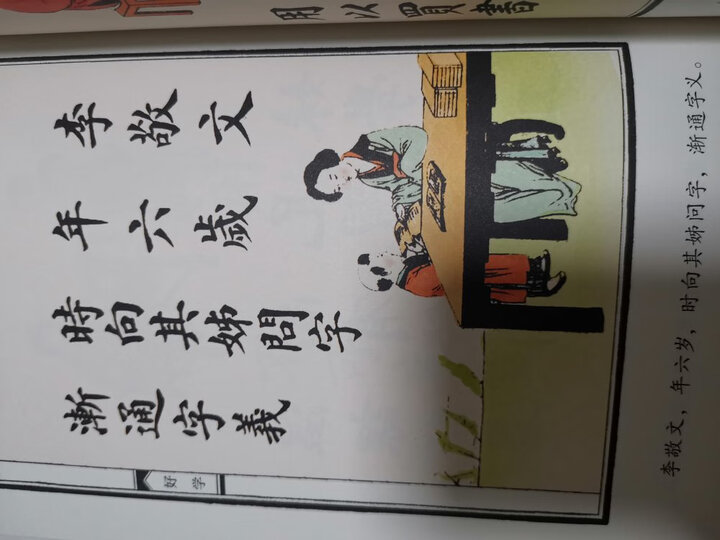 用以買書
李敬文
年六歲
時向其姊問字
漸通字義
好学
李敬文，年六岁，时向其姊问字，渐通字义。